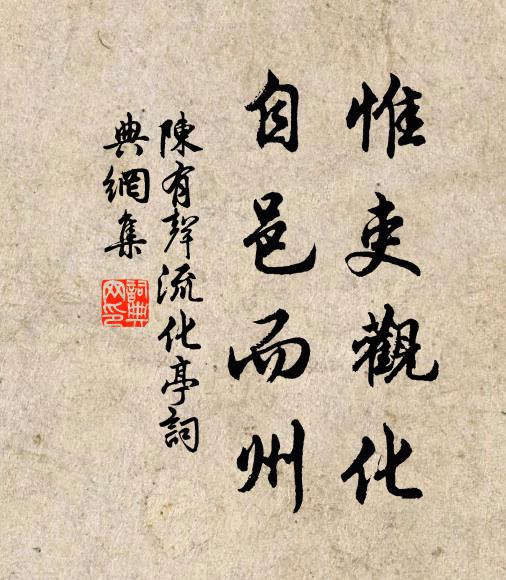 惟吏觀化
自邑而州
陳有聲流化亭詞
典網集
詞典網印